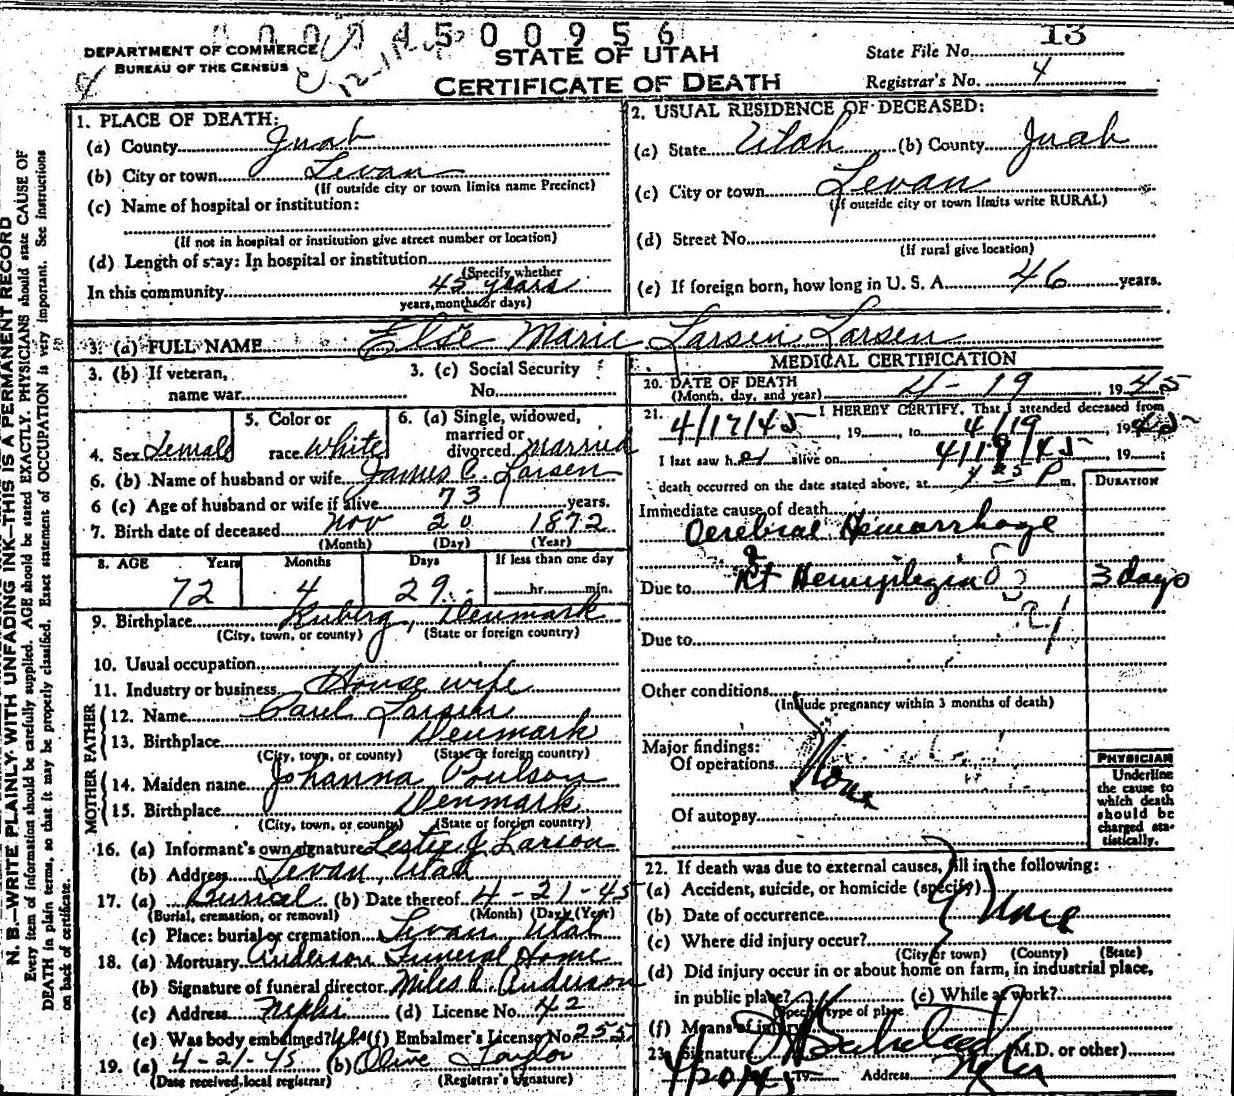 500956
DEPARTMENT OF COMMERCE
BUREAU OF THE CENSUS
STATE OF UTAH
CERTIFICATE OF DEATH
State File No. 13
Registrar's No. 4
N. B.—WRITE PLAINLY WITH UNFADING INK—THIS IS A PERMANENT RECORD
Every item of information should be carefully supplied. AGE should be stated EXACTLY. PHYSICIANS should state CAUSE OF
DEATH in plain terms, so that it may be properly classified. Exact statement of OCCUPATION is very important. See instructions
on back of certificate.
1. PLACE OF DEATH:
(a) County Juab
(b) City or town Levan
(If outside city or town limits name Precinct)
(c) Name of hospital or institution:
(If not in hospital or institution give street number or location)
(d) Length of stay: In hospital or institution
(Specify whether
In this community 45 years
years, months or days)
2. USUAL RESIDENCE OF DECEASED:
(a) State Utah (b) County Juab
(c) City or town Levan
(If outside city or town limits write RURAL)
(d) Street No.
(If rural give location)
(e) If foreign born, how long in U. S. A. 46 years.
3. (a) FULL NAME Else Marie Larsen Larsen
3. (b) If veteran,
name war
3. (c) Social Security
No.
4. Sex Female
5. Color or
race White
6. (a) Single, widowed,
married or
divorced married
6. (b) Name of husband or wife James C. Larsen
6 (c) Age of husband or wife if alive 73 years.
7. Birth date of deceased Nov 20 1872
(Month) (Day) (Year)
8. AGE Years Months Days If less than one day
72 4 29 hr. min.
9. Birthplace Denmark
(City, town, or county) (State or foreign country)
10. Usual occupation
11. Industry or business House wife
FATHER
12. Name Larsen
13. Birthplace Denmark
(City, town, or county) (State or foreign country)
MOTHER
14. Maiden name Johanna Poulson
15. Birthplace Denmark
(City, town, or county) (State or foreign country)
16. (a) Informant's own signature Lester J. Larson
(b) Address Levan, Utah
17. (a) Burial (b) Date thereof 4-21-45
(Burial, cremation, or removal) (Month) (Day) (Year)
(c) Place: burial or cremation Levan, Utah
18. (a) Mortuary Anderson Funeral Home
(b) Signature of funeral director Miles C. Anderson
(c) Address Nephi (d) License No. 42
(e) Was body embalmed? Yes (f) Embalmer's License No. 255
19. (a) 4-21-45 (b) Olive Taylor
(Date received, local registrar) (Registrar's signature)
MEDICAL CERTIFICATION
20. DATE OF DEATH
(Month, day, and year) 4-19 1945
21. I HEREBY CERTIFY, That I attended deceased from
4/17/45, 19, to 4/19, 1945
I last saw her alive on 4/19/45, 19;
death occurred on the date stated above, at P m.
DURATION
Immediate cause of death
Cerebral Hemorrhage
Due to Rt Hemiplegia 3 days
Due to
Other conditions
(Include pregnancy within 3 months of death)
Major findings:
Of operations None
Of autopsy
PHYSICIAN
Underline
the cause to
which death
should be
charged sta-
tistically.
22. If death was due to external causes, fill in the following:
(a) Accident, suicide, or homicide (specify)
(b) Date of occurrence None
(c) Where did injury occur?
(City or town) (County) (State)
(d) Did injury occur in or about home on farm, in industrial place,
in public place? (e) While at work?
(Specify type of place
(f) Means of injury
23. Signature (M.D. or other)
4/20/45 19 Address